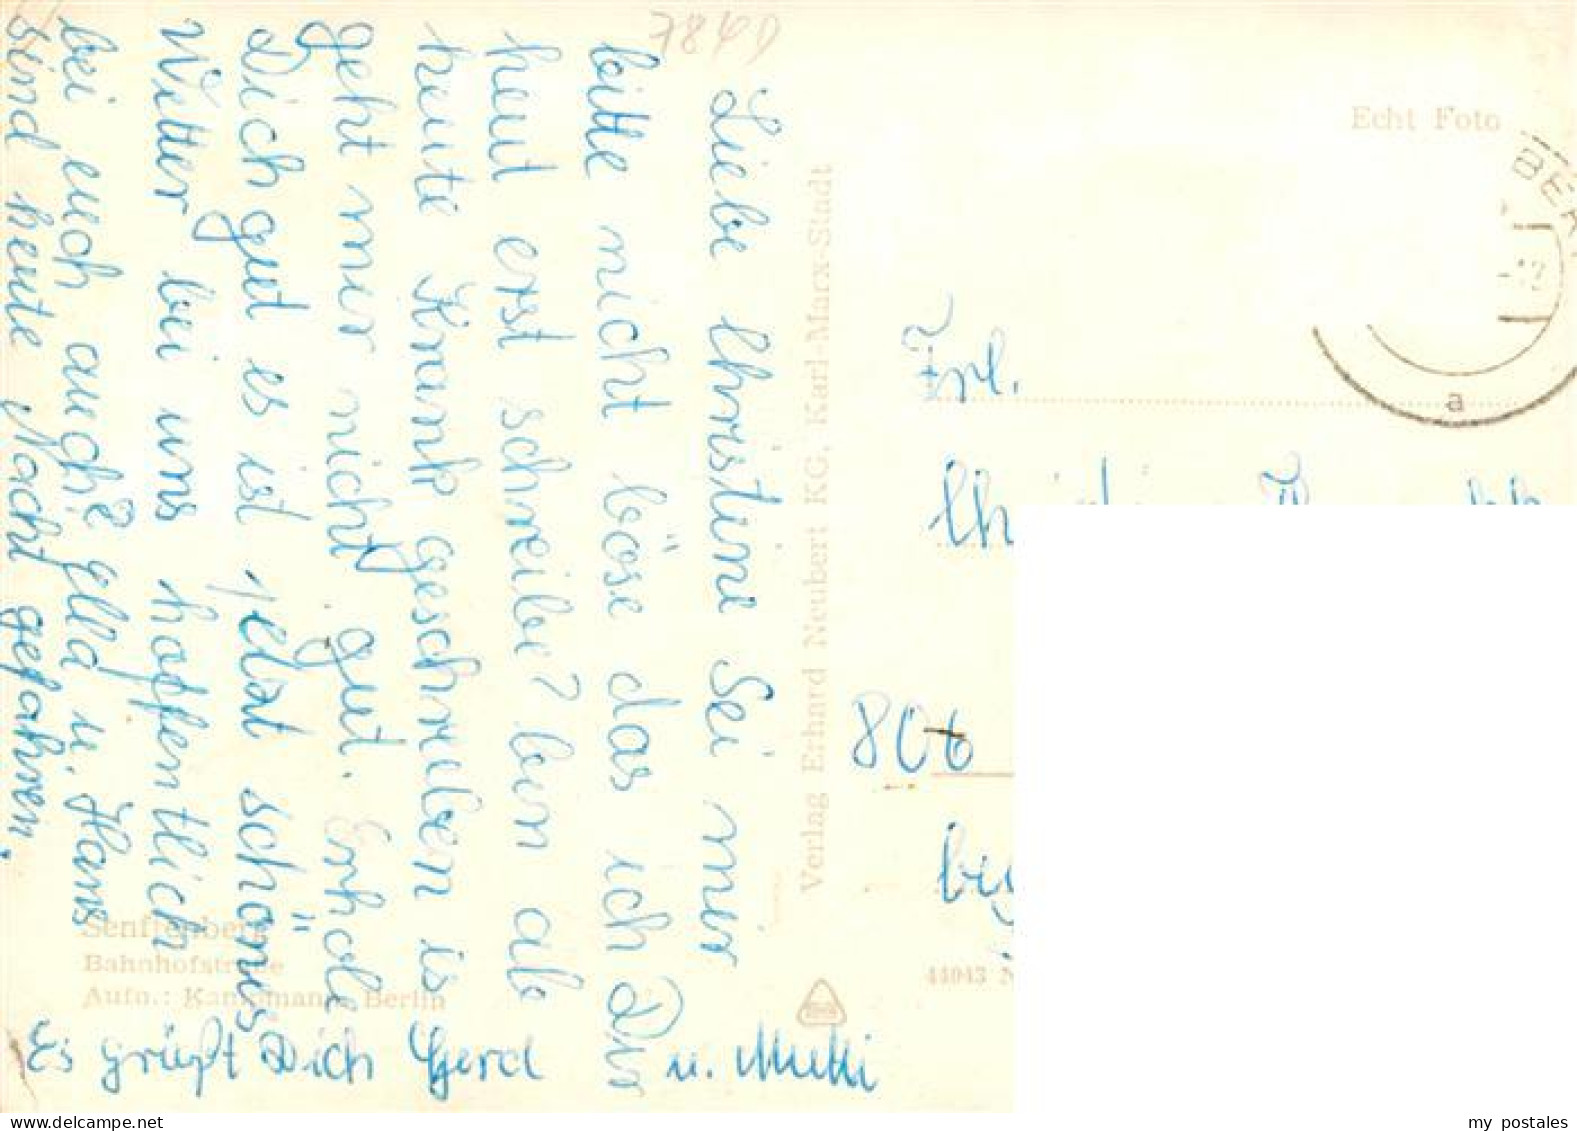 Liebe Christine Sei mir
bitte nicht böse das ich Dir
heut erst schreibe? bin ab
heute Krank geschrieben is
geht mir nicht gut. Erhole
Dich gut es ist jetzt schönes
Wetter bei uns hoffentlich
bei euch auch? Ella u. Hans
sind heute Nacht gefahren.
Es grüßt Dich Gerd u. Mutti
Senftenberg
Bahnhofstraße
Aufn.: Kampmann, Berlin
Verlag Erhard Neubert KG, Karl-Marx-Stadt
Echt Foto
BER
12
a
Frl.
806
44043 N
my postales